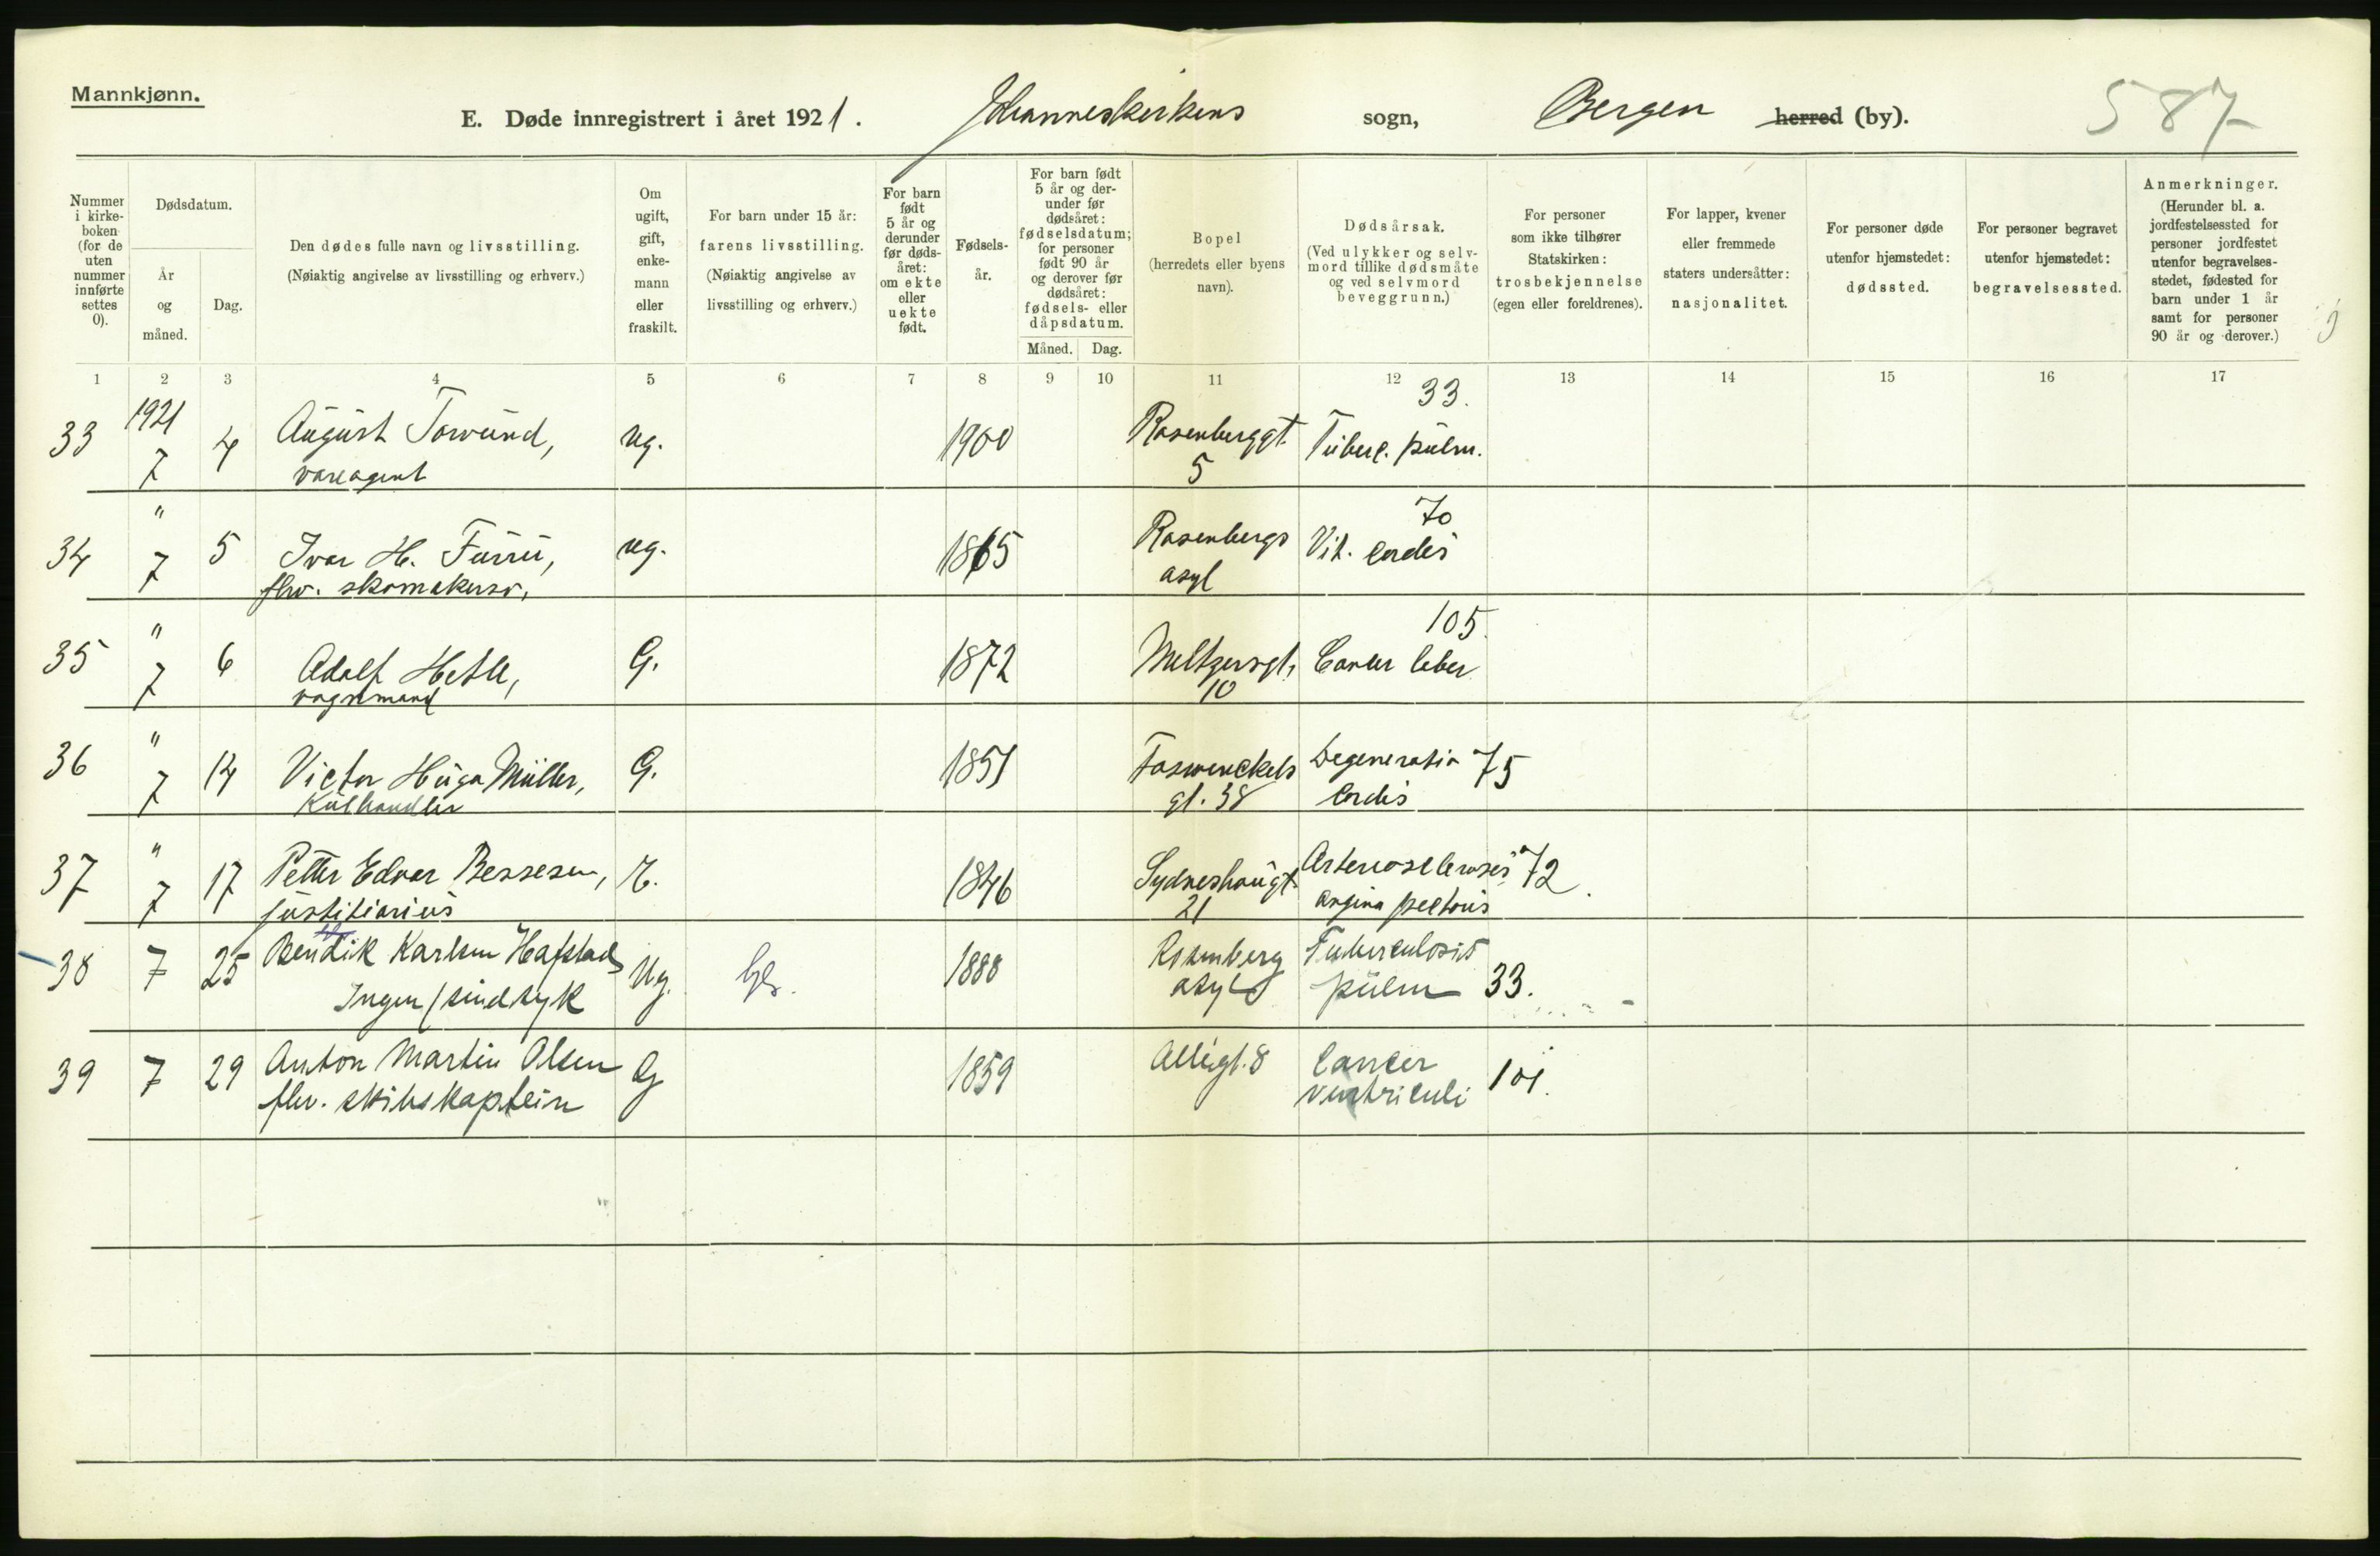 Mannkjønn.
E. Døde innregistrert i året 1921. Johanneskirkens sogn, Bergen herred (by). 587
Nummer i kirke- boken (for de uten nummer innførte settes 0).
Dødsdatum.
År og måned.
Dag.
Den dødes fulle navn og livsstilling.
(Nøiaktig angivelse av livsstilling og erhverv.)
Om ugift, gift, enke- mann eller fraskilt.
For barn under 15 år: farens livsstilling.
(Nøiaktig angivelse av livsstilling og erhverv.)
For barn født 5 år og derunder før døds- året: om ekte eller uekte født.
Fødsels- år.
For barn født 5 år og der- under før dødsåret: fødselsdatum; for personer født 90 år og derover før dødsåret: fødsels- eller dåpsdatum.
Måned. Dag.
Bopel
(herredets eller byens navn).
Dødsårsak.
(Ved ulykker og selv- mord tillike dødsmåte og ved selvmord beveggrunn.)
For personer som ikke tilhører Statskirken: trosbekjennelse (egen eller foreldrenes).
For lapper, kvener eller fremmede staters undersåtter: nasjonalitet.
For personer døde utenfor hjemstedet: dødssted.
For personer begravet utenfor hjemstedet: begravelsessted.
Anmerkninger.
(Herunder bl. a. jordfestelsessted for personer jordfestet utenfor begravelses- stedet, fødested for barn under 1 år samt for personer 90 år og derover.)
1 2 3 4 5 6 7 8 9 10 11 12 13 14 15 16 17
33 1921 7 4 August Torvund, ug. 1900 Rosenberggt. 5 Tuberc. pulm. 33.
vareagent
34 " 7 5 Ivar H. Furru, ug. 1865 Rosenbergs asyl Vit. cordis 70
fhv. skomakersv.
35 " 7 6 Adolf Hetle, G. 1872 Meltzersgt. 10 Cancer leber 105.
vognmand
36 " 7 14 Victor Hugo Müller, G. 1851 Foswinckels gt. 38 Degeneratio cordis 75
Kulhandler
37 " 7 17 Petter Edvar Bessesen, E. 1846 Sydneshaugt. 21 Arteriosclerosis angina pectoris 72.
justitiarius
38 7 25 Bendik Karlsen Hafstad Ug. 1888 Rosenberg asyl Tuberculosis pulm 33.
Ingen/sindsyk
39 7 29 Anton Martin Olsen G 1859 Allégt. 8 Cancer ventriculi 101.
fhv. skibskaptein